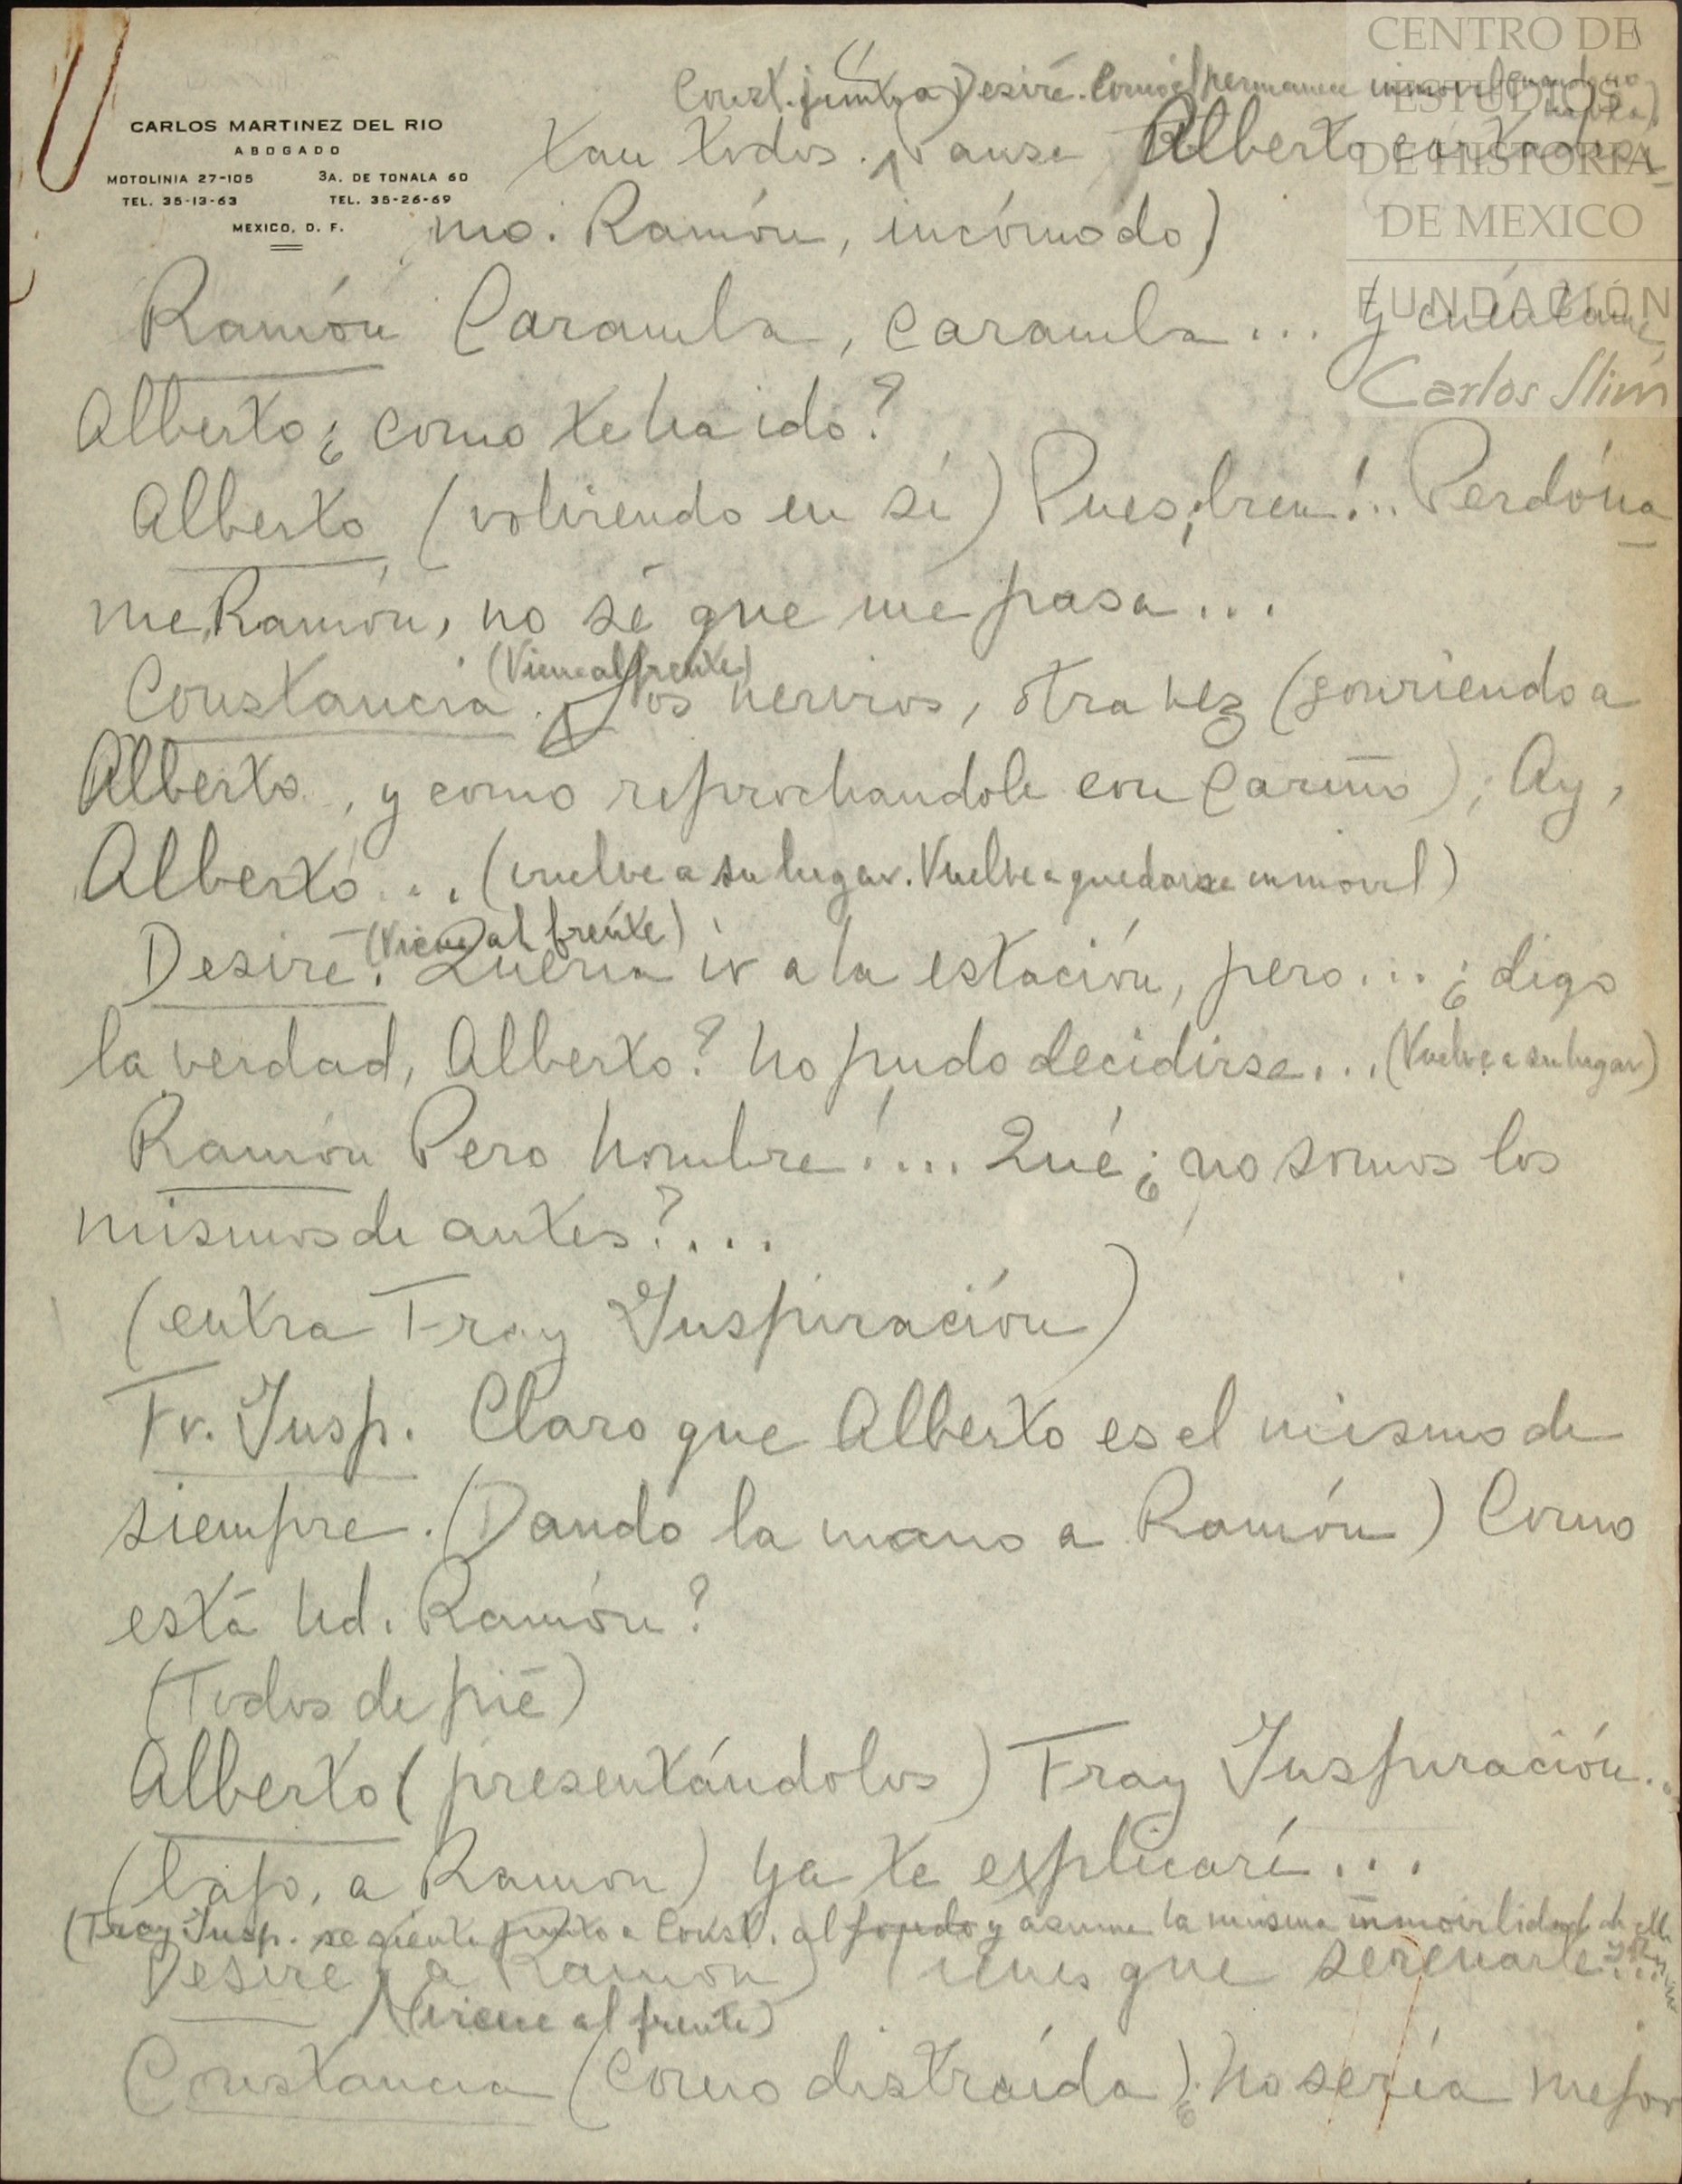 CENTRO DE
ESTUDIOS
DE HISTORIA
DE MEXICO
FUNDACIÓN
Carlos Slim
CARLOS MARTINEZ DEL RIO
ABOGADO
MOTOLINIA 27-105 3A. DE TONALA 60
TEL. 35-13-63 TEL. 35-26-69
MEXICO, D. F.
Const. junto a Desiré. Como él permanece inmovil cuando no
habla)
tan todos. Pausa Alberto
mo. Ramón, incómodo)
Ramón Caramba, caramba... y cuéntame,
Alberto ¿como te ha ido?
Alberto (volviendo en sí) Pues ¡bien!.. Perdóna
me, Ramón, no sé que me pasa...
(Viene al frente)
Constancia. Los nervios, otra vez (sonriendo a
Alberto, y como reprochandole con cariño) ¡Ay,
Alberto... (vuelve a su lugar. Vuelve a quedarse inmovil)
(Viene al frente)
Desiré. Quería ir a la estación, pero... ¿digo
la verdad, Alberto? No pudo decidirse... (Vuelve a su lugar)
Ramón Pero hombre!... Qué ¿no somos los
mismos de antes?...
(entra Fray Inspiración)
Fr. Insp. Claro que Alberto es el mismo de
siempre. (Dando la mano a Ramón) Como
está Ud. Ramón?
(Todos de pié)
Alberto (presentándolos) Fray Inspiración...
(bajo, a Ramon) Ya te explicaré...
(Fray Insp. se sienta junto a Const. al fondo y asume la misma inmovilidad de
Desiré (a Ramón) Tienes que serenarle...
(viene al frente)
Constancia (Como distraída) ¿No sería mejor